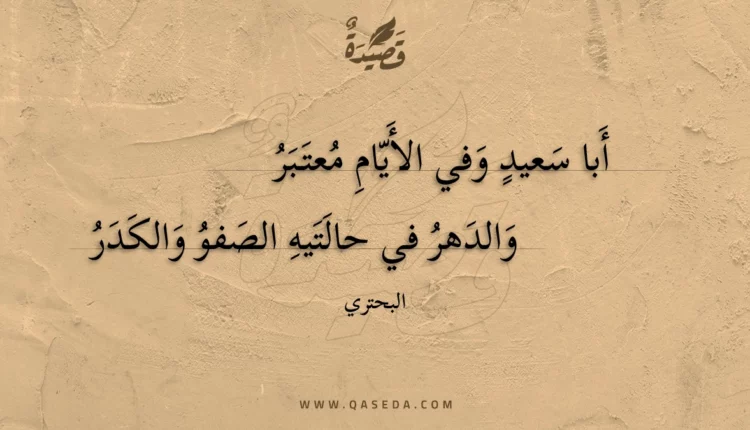 قَصِيدَةٌ
أَبا سَعيدٍ وَفي الأَيّامِ مُعتَبَرُ
وَالدَهرُ في حالَتَيهِ الصَفوُ وَالكَدَرُ
البحتري
WWW.QASEDA.COM